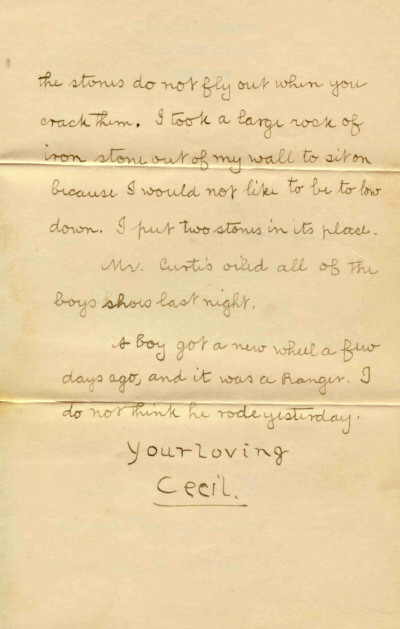 the stones do not fly out when you
crack them. I took a large rock of
iron stone out of my wall to sit on
because I would not like to be to low
down. I put two stones in its place.
Mr. Curtis oiled all of the
boys shoes last night.
A boy got a new wheel a few
days ago, and it was a Ranger. I
do not think he rode yesterday.
Your loving
Cecil.